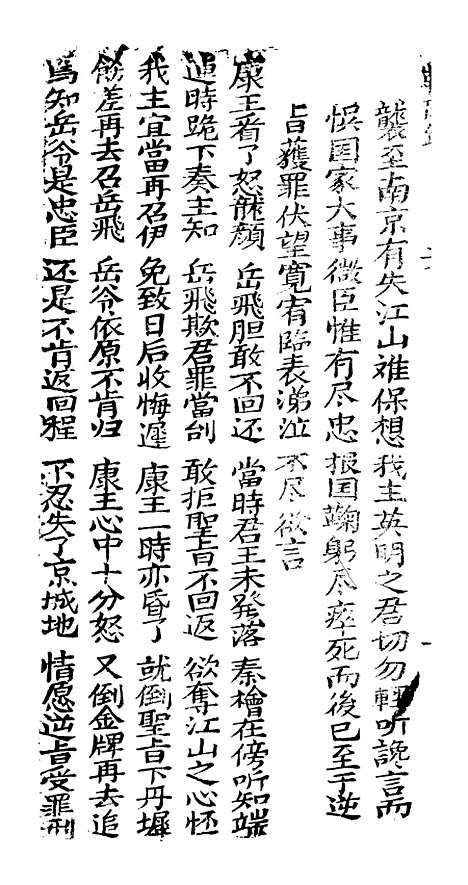 襲至南京有失江山难保想我主英明之君切勿輕听讒言而
悞国家大事微臣惟有尽忠报国鞠躬尽瘁死而後已至于逆
旨獲罪伏望寬宥臨表涕泣不尽欲言
康王看了怒龍顔 岳飛胆敢不回还 當時君王未発落 秦檜在傍听知端
連時跪下奏主知 岳飛欺君罪當刮 敢拒聖旨不回返 欲奪江山之心怌
我主宜當再召伊 免致日后收悔遲 康王一時亦昏了 就倒聖旨下丹墀
飭差再去召岳飛 岳令依原不肯归 康王心中十分怒 又倒金牌再去追
爲知岳令是忠臣 还是不肯返回程 不忍失了京城地 情愿逆旨受罪刑